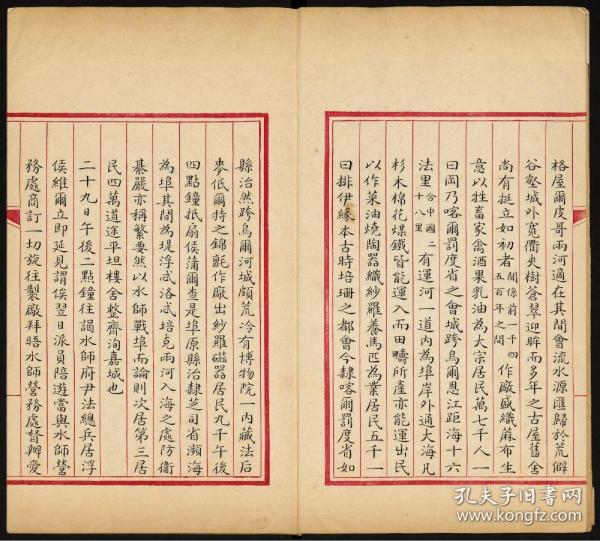 格屋爾皮哥兩河適在其間會流水源匯歸於荒僻
谷壑城外寬衢夾樹蒼翠迎眸而多年之古屋舊舍
尚有挺立如初者關係前一千四五百年之間作廠盛織蔴布生
意以牲畜家禽酒果乳油為大宗居民萬七千人一
曰岡乃喀爾罰度省之會城跨烏爾恩江距海十六
法里合中國二十八里有運河一道內為埠岸外通大海凡
杉木棉花煤鐵皆能運入而田疇所產亦能運出民
以作菜油燒陶器織紗羅養馬匹為業居民五千一
曰排伊緣本古時培珊之都會今隸喀爾罰度省如
縣治然跨烏爾河城頗荒冷有博物院一內藏法后
麥低爾特之錦氈作廠出紗羅磁器居民九千午後
四點鐘抵扇侯蒲爾查是埠原縣治隸芝司省瀕海
為埠其間為堤浮忒洛忒培克兩河入海之處防衛
綦嚴亦稱繁要然以水師戰埠而論則次居第三居
民四萬道途平坦樓舍整齊洵嘉城也
二十九日午後二點鐘往謁水師府尹法總兵居浮
侯維爾立即延見謂侯翌日派員陪遊當與水師營
務處商訂一切旋往製廠拜晤水師營務處督辦愛
孔夫子旧书网
www.kongfz.com